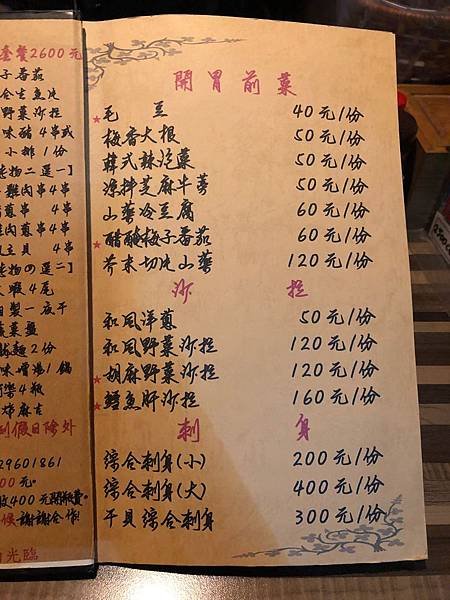 套餐2600元
開胃前菜
★毛豆 40元/份
梅香大根 50元/份
韓式辣泡菜 50元/份
涼拌芝麻牛蒡 50元/份
山藥冷豆腐 60元/份
★醋醃梅子番茄 60元/份
芥末切片山藥 120元/份
沙拉
和風洋蔥 50元/份
和風野菜沙拉 120元/份
★胡麻野菜沙拉 120元/份
★鱈魚肝沙拉 160元/份
刺身
綜合刺身(小) 200元/份
綜合刺身(大) 400元/份
干貝綜合刺身 300元/份
子番茄
合生魚片
野菜沙拉
4串或
小排1份
物二選一】
雞肉串4串
蔥串 4串
雞肉蔥串 4串
貝 4串
物の選二】
蝦4尾
自製一夜干
麵2份
味噌湯1鍋
4瓶
炸麻吉
例假日除外
29601861
00元。
收400元開瓶費。
謝謝合作!
光臨